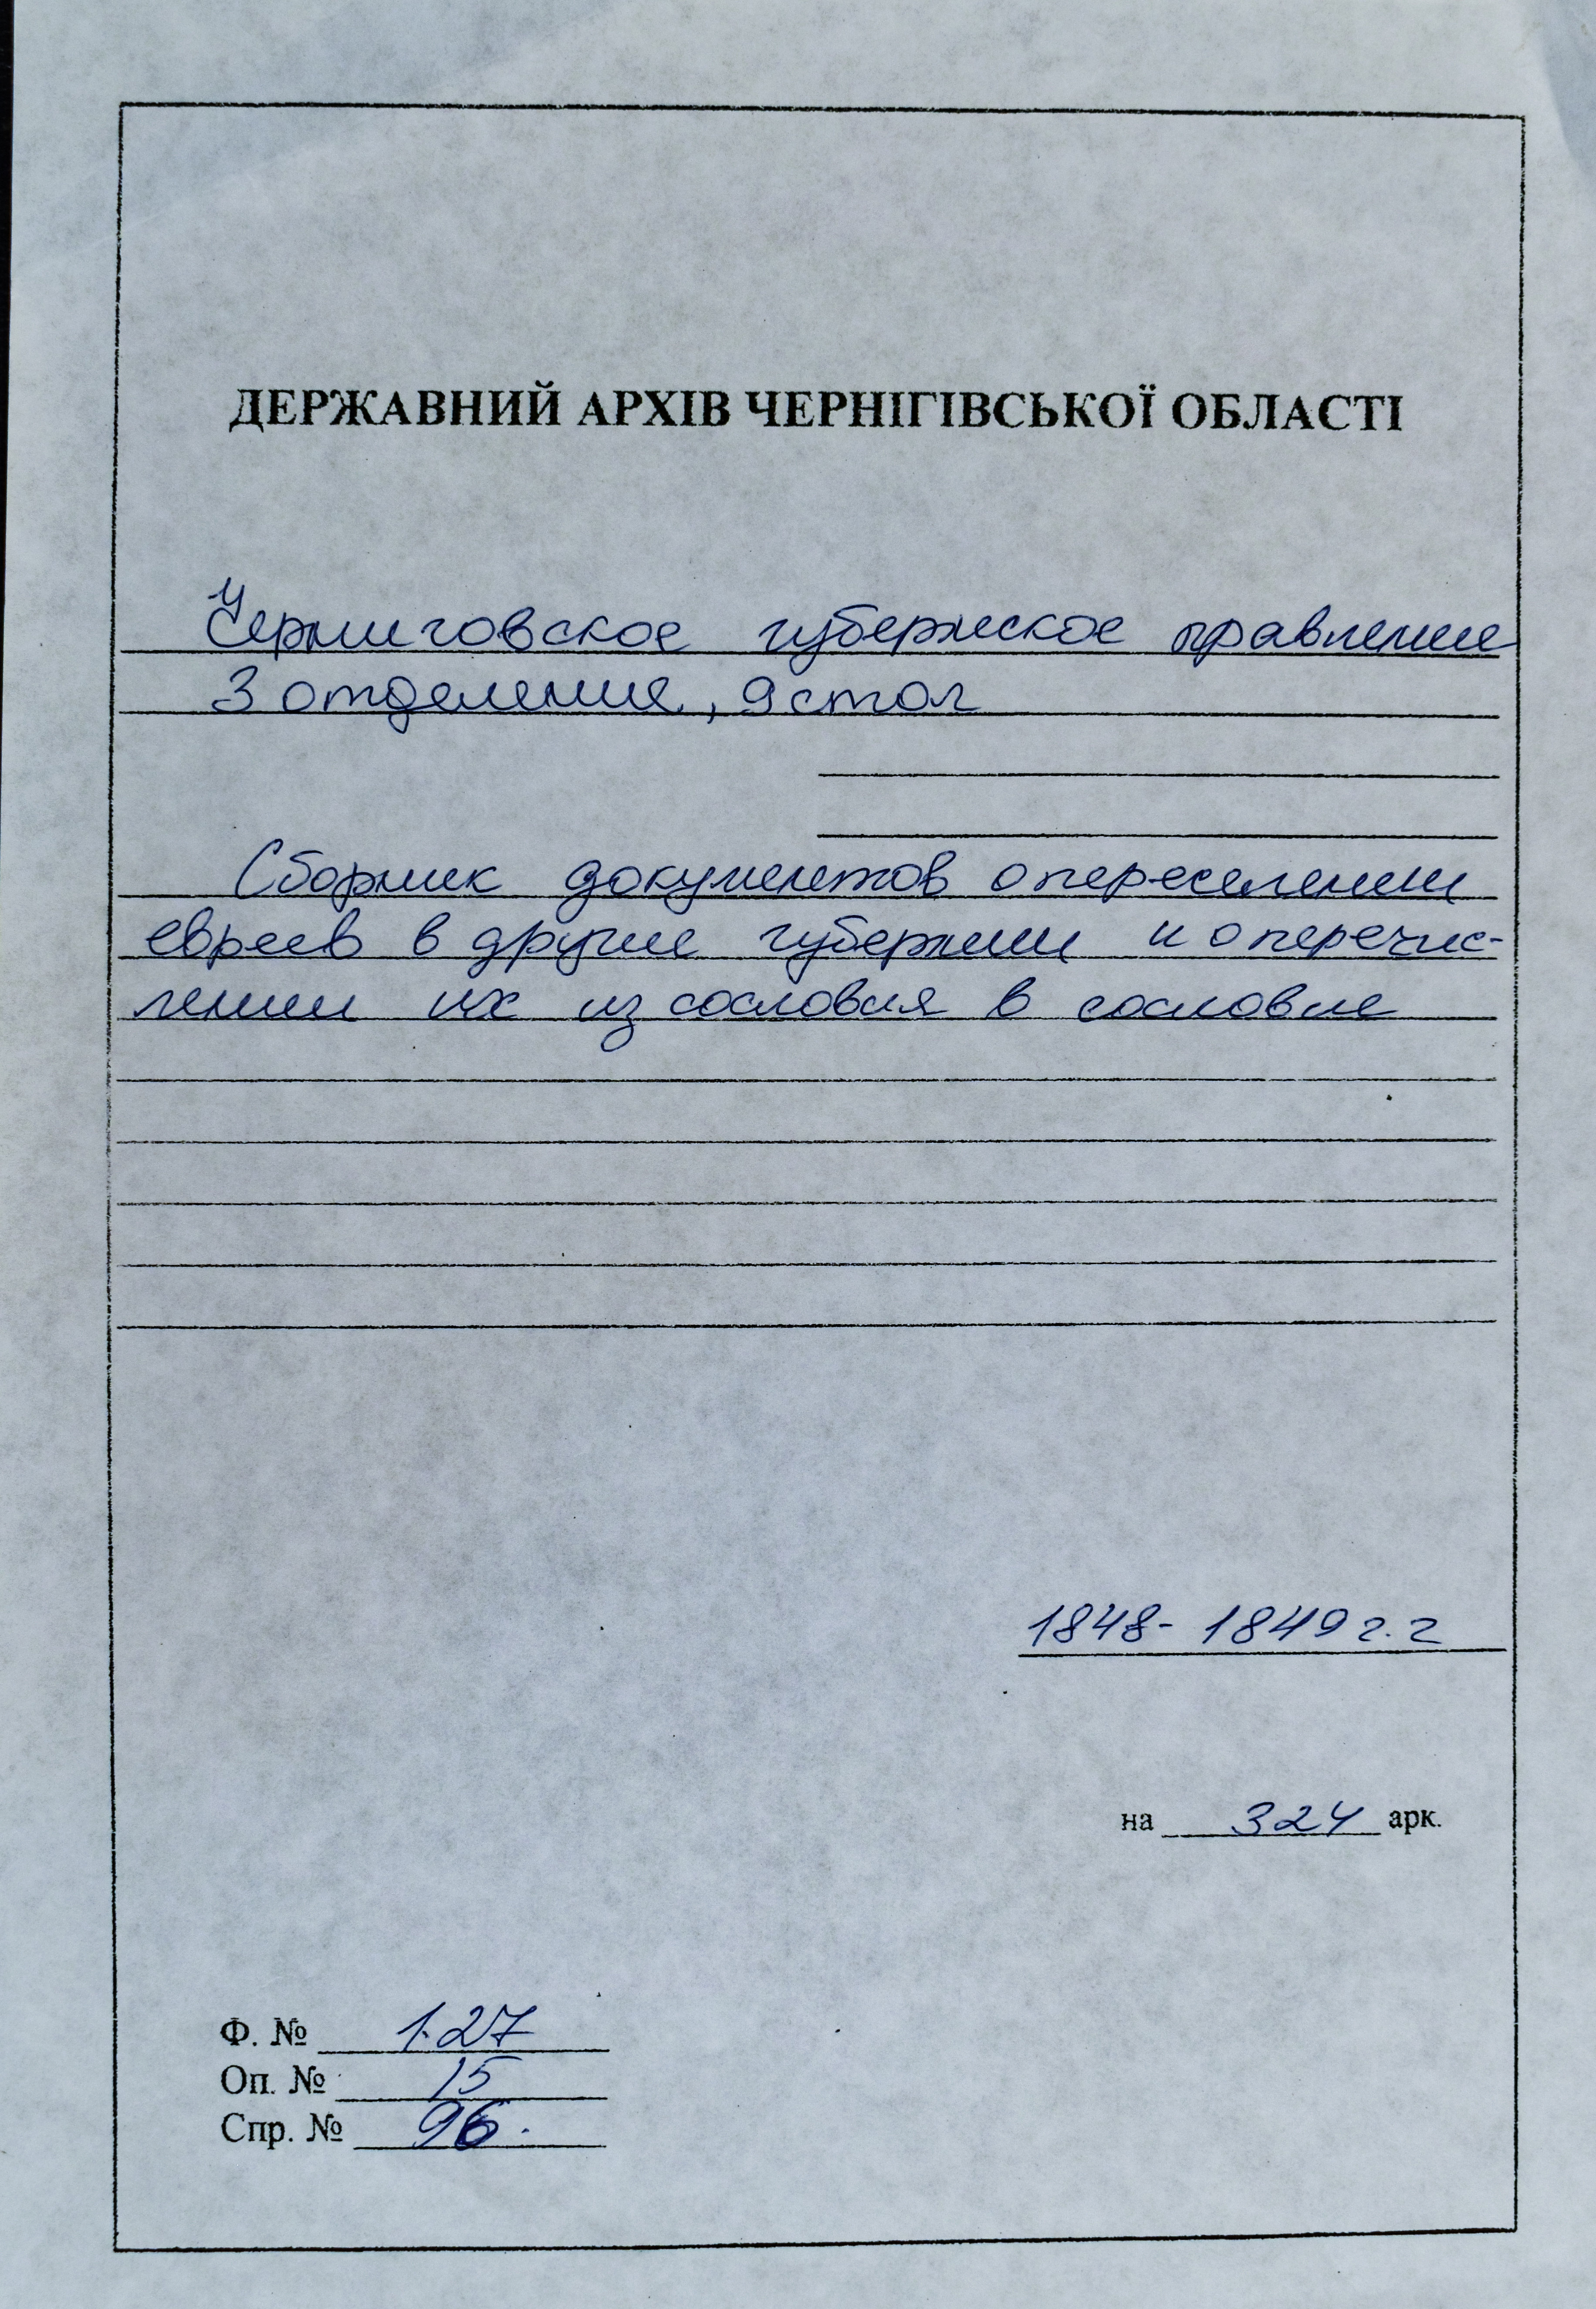 ДЕРЖАВНИЙ АРХІВ ЧЕРНІГІВСЬКОЇ ОБЛАСТІ
Черниговское губернское правление
3 отделение, 9 стол
Сборник документов о переселении
евреев в другие губернии и о перечис-
лении их из сословия в сословие
1848- 1849 г.г
на 324 арк.
Ф. № 127
Оп. № 15
Спр. № 96.